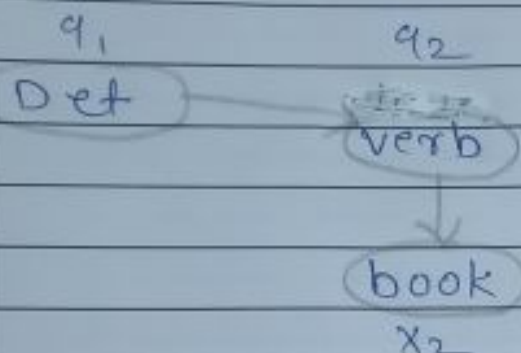 q1 q2
Det
verb
book
x2